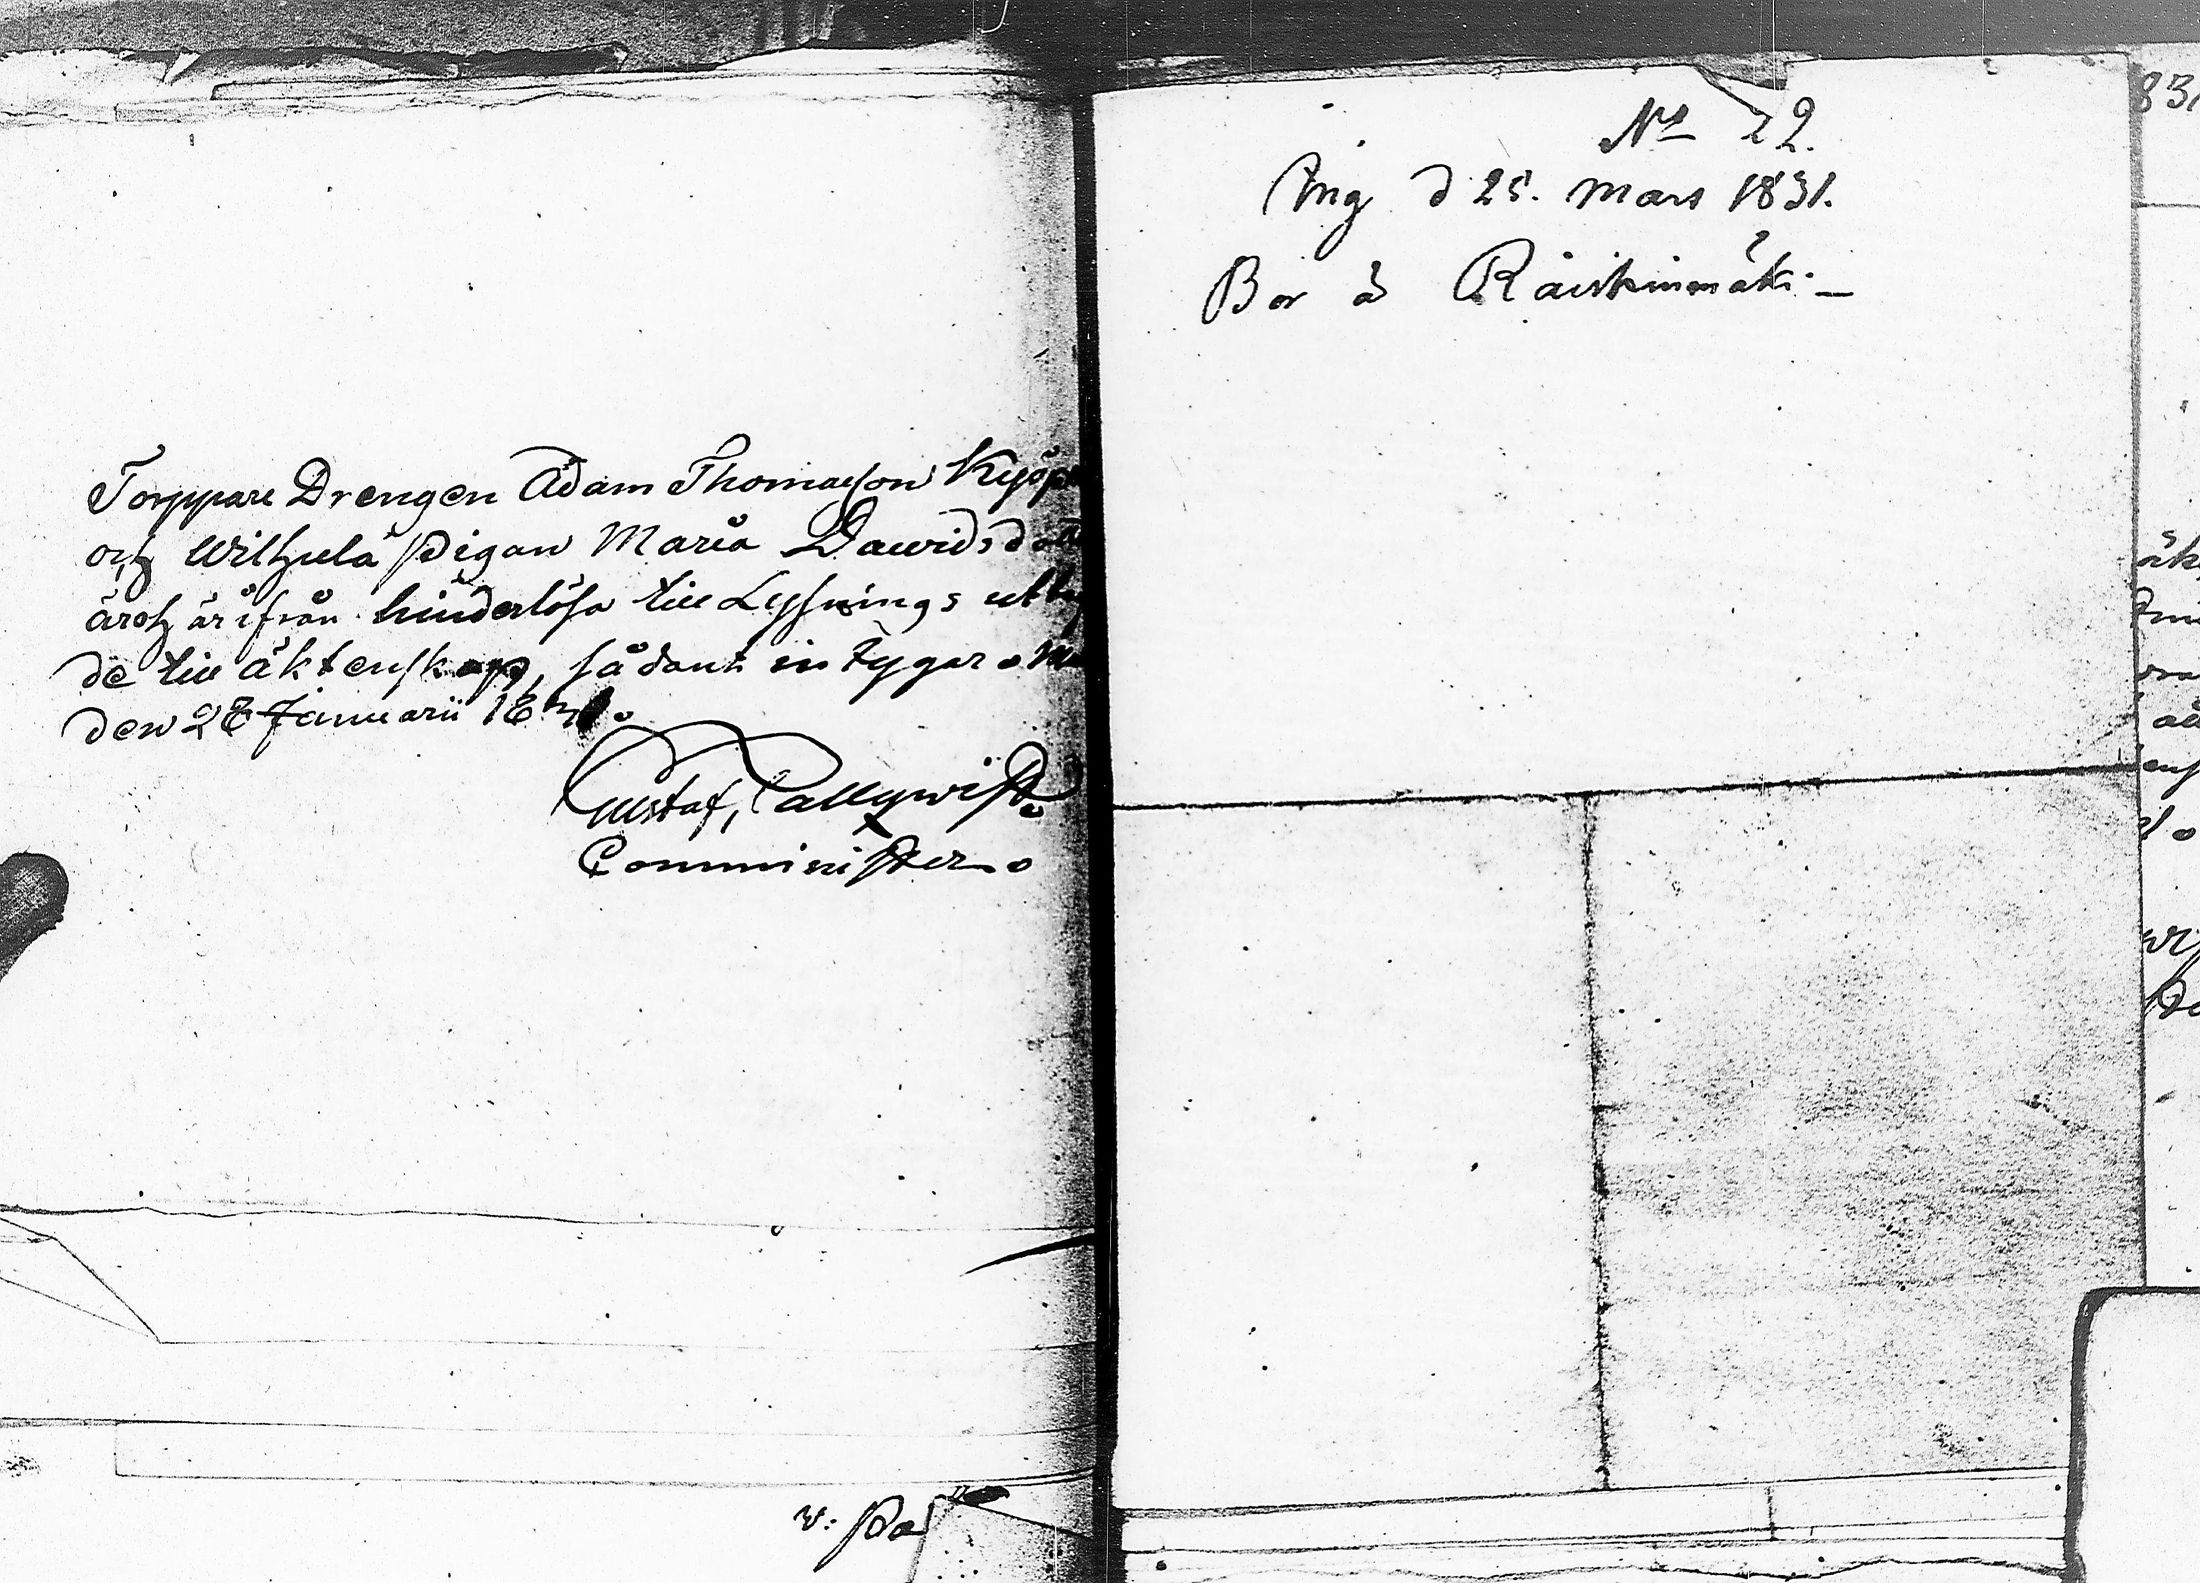 Torppare Drengen Adam Thomasson Kyöp
och Wilhula Pigan Maria Dawidsdott
äro härifrån hinderlösa till Lysnings utty
de till äktenskap, sådant intygar
den 28 Januarii 1831.
Gustaf, Callqwist.
Comminister.
v: Pa
No 22.
Ing d 25. Mars 1831.
Bor å Räiskinmäki
831